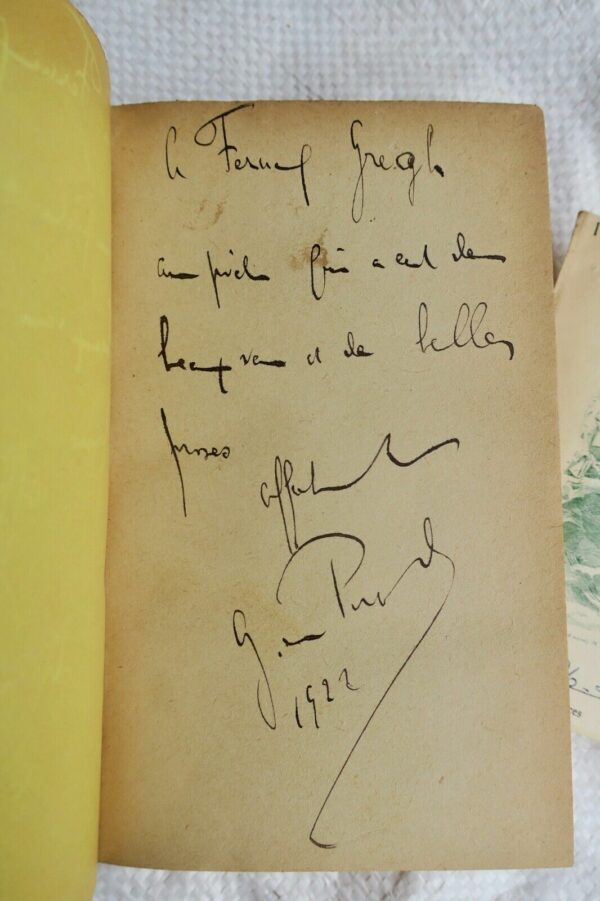 A Fernand Gregh
au poète qui a écrit de
beaux vers et de belles
proses
1922